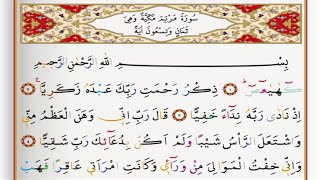 سُورَةُ مَرْيَمَ مَكِّيَّةٌ وَهِيَ
ثَمَانٍ وَتِسْعُونَ اٰيَةً
بِسْمِ اللّٰهِ الرَّحْمٰنِ الرَّحِيمِ
كٓهٰيٰعٓصٓ ﴿١﴾ ذِكْرُ رَحْمَتِ رَبِّكَ عَبْدَهُ زَكَرِيَّا ﴿٢﴾
اِذْ نَادٰى رَبَّهُ نِدَٓاءً خَفِيًّا ﴿٣﴾ قَالَ رَبِّ اِنِّي وَهَنَ الْعَظْمُ مِنِّي
وَاشْتَعَلَ الرَّأْسُ شَيْبًا وَلَمْ اَكُنْ بِدُعَٓائِكَ رَبِّ شَقِيًّا ﴿٤﴾
وَاِنِّي خِفْتُ الْمَوَالِيَ مِنْ وَرَٓائِي وَكَانَتِ امْرَاَتِي عَاقِرًا فَهَبْ